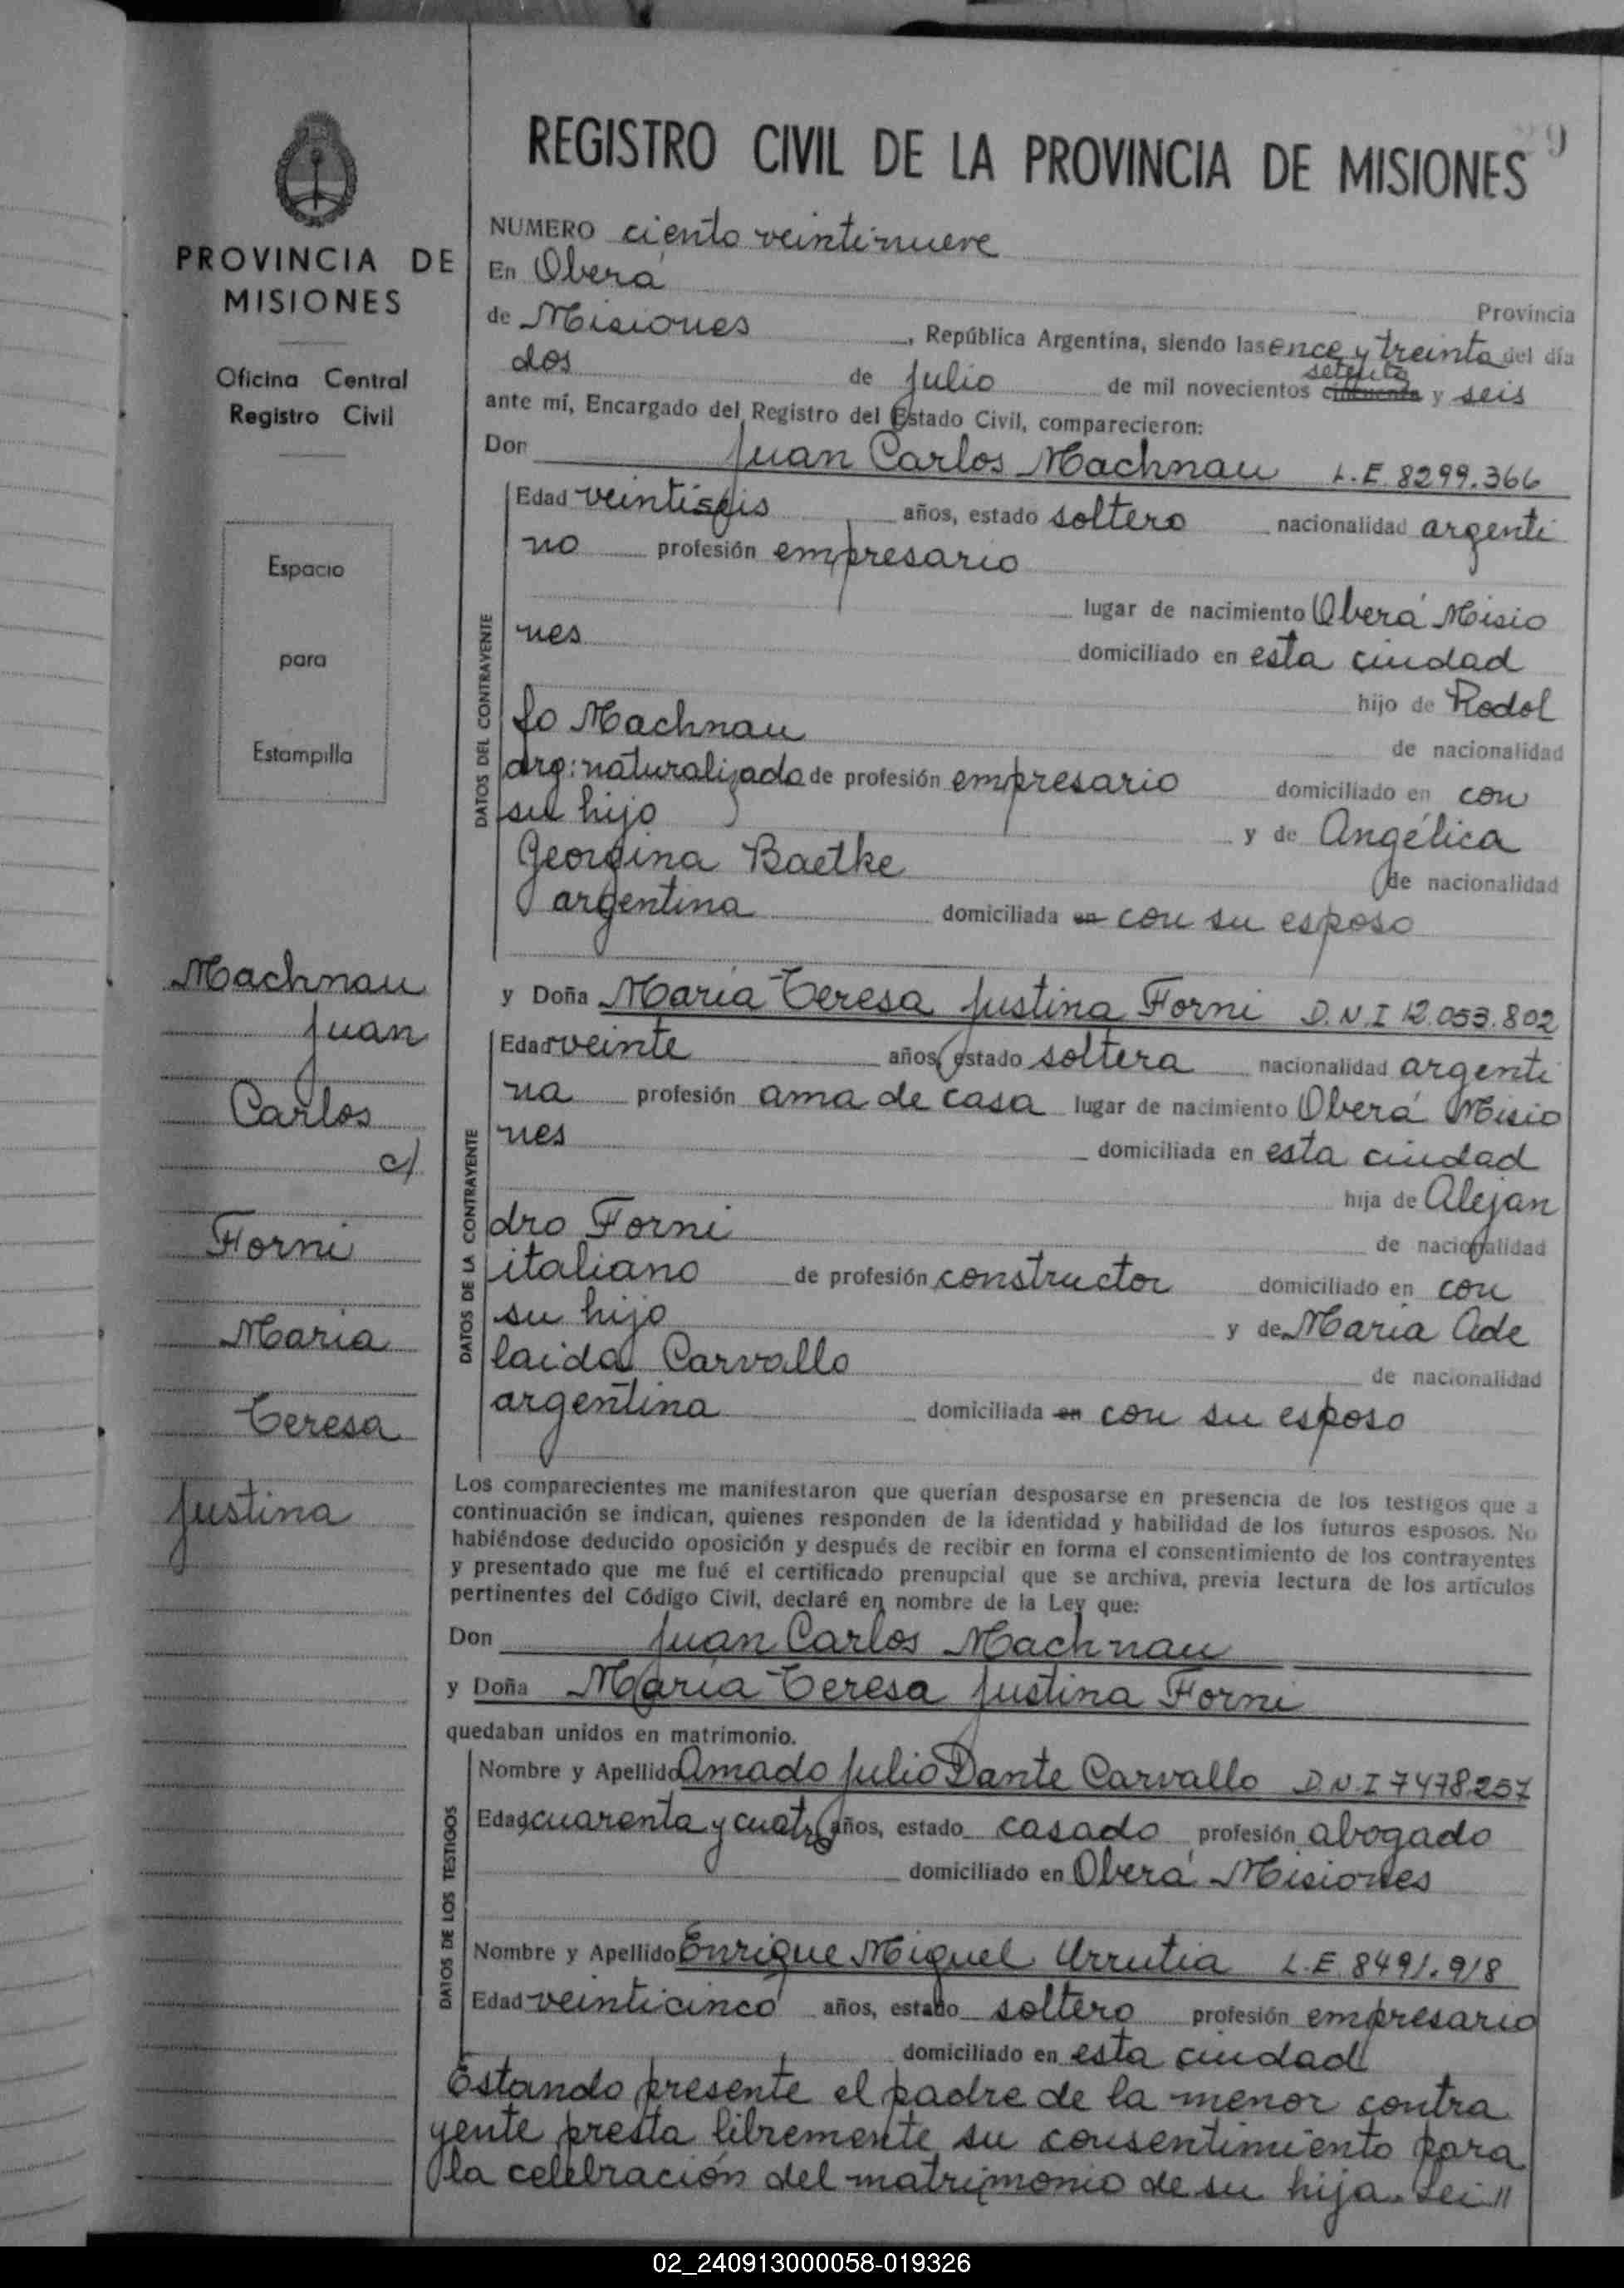 REGISTRO CIVIL DE LA PROVINCIA DE MISIONES
PROVINCIA DE
MISIONES
Oficina Central
Registro Civil
Espacio
para
Estampilla
Machnau
Juan
Carlos
c/
Forni
Maria
Teresa
Justina
NUMERO ciento veintinueve
En Oberá
Provincia
de Misiones, República Argentina, siendo las once y treinta del día
dos de Julio de mil novecientos cincuenta setenta y seis
ante mí, Encargado del Registro del Estado Civil, comparecieron:
Don Juan Carlos Machnau L.E. 8299.366
DATOS DEL CONTRAYENTE
Edad veintiseis años, estado soltero nacionalidad argenti
no profesión empresario
lugar de nacimiento Oberá Misio
nes
domiciliado en esta ciudad
hijo de Rodol
fo Machnau
de nacionalidad
arg: naturalizado de profesión empresario domiciliado en con
su hijo y de Angélica
Georgina Baetke
de nacionalidad
argentina domiciliada en con su esposo
y Doña María Teresa Justina Forni D.N.I 12.053.802
DATOS DE LA CONTRAYENTE
Edad veinte años, estado soltera nacionalidad argenti
na profesión ama de casa lugar de nacimiento Oberá Misio
nes domiciliada en esta ciudad
hija de Alejan
dro Forni
de nacionalidad
italiano de profesión constructor domiciliado en con
su hijo y de María Ade
laida Carvallo
de nacionalidad
argentina domiciliada en con su esposo
Los comparecientes me manifestaron que querían desposarse en presencia de los testigos que a
continuación se indican, quienes responden de la identidad y habilidad de los futuros esposos. No
habiéndose deducido oposición y después de recibir en forma el consentimiento de los contrayentes
y presentado que me fué el certificado prenupcial que se archiva, previa lectura de los artículos
pertinentes del Código Civil, declaré en nombre de la Ley que:
Don Juan Carlos Machnau
y Doña María Teresa Justina Forni
quedaban unidos en matrimonio.
DATOS DE LOS TESTIGOS
Nombre y Apellido Amado Julio Dante Carvallo D.N.I 7478257
Edad cuarenta y cuatro años, estado casado profesión abogado
domiciliado en Oberá Misiones
Nombre y Apellido Enrique Miguel Urrutia L.E. 8491.918
Edad veinticinco años, estado soltero profesión empresario
domiciliado en esta ciudad
Estando presente el padre de la menor contra
yente presta libremente su consentimiento para
la celebración del matrimonio de su hija. Lei //
02_240913000058-019326